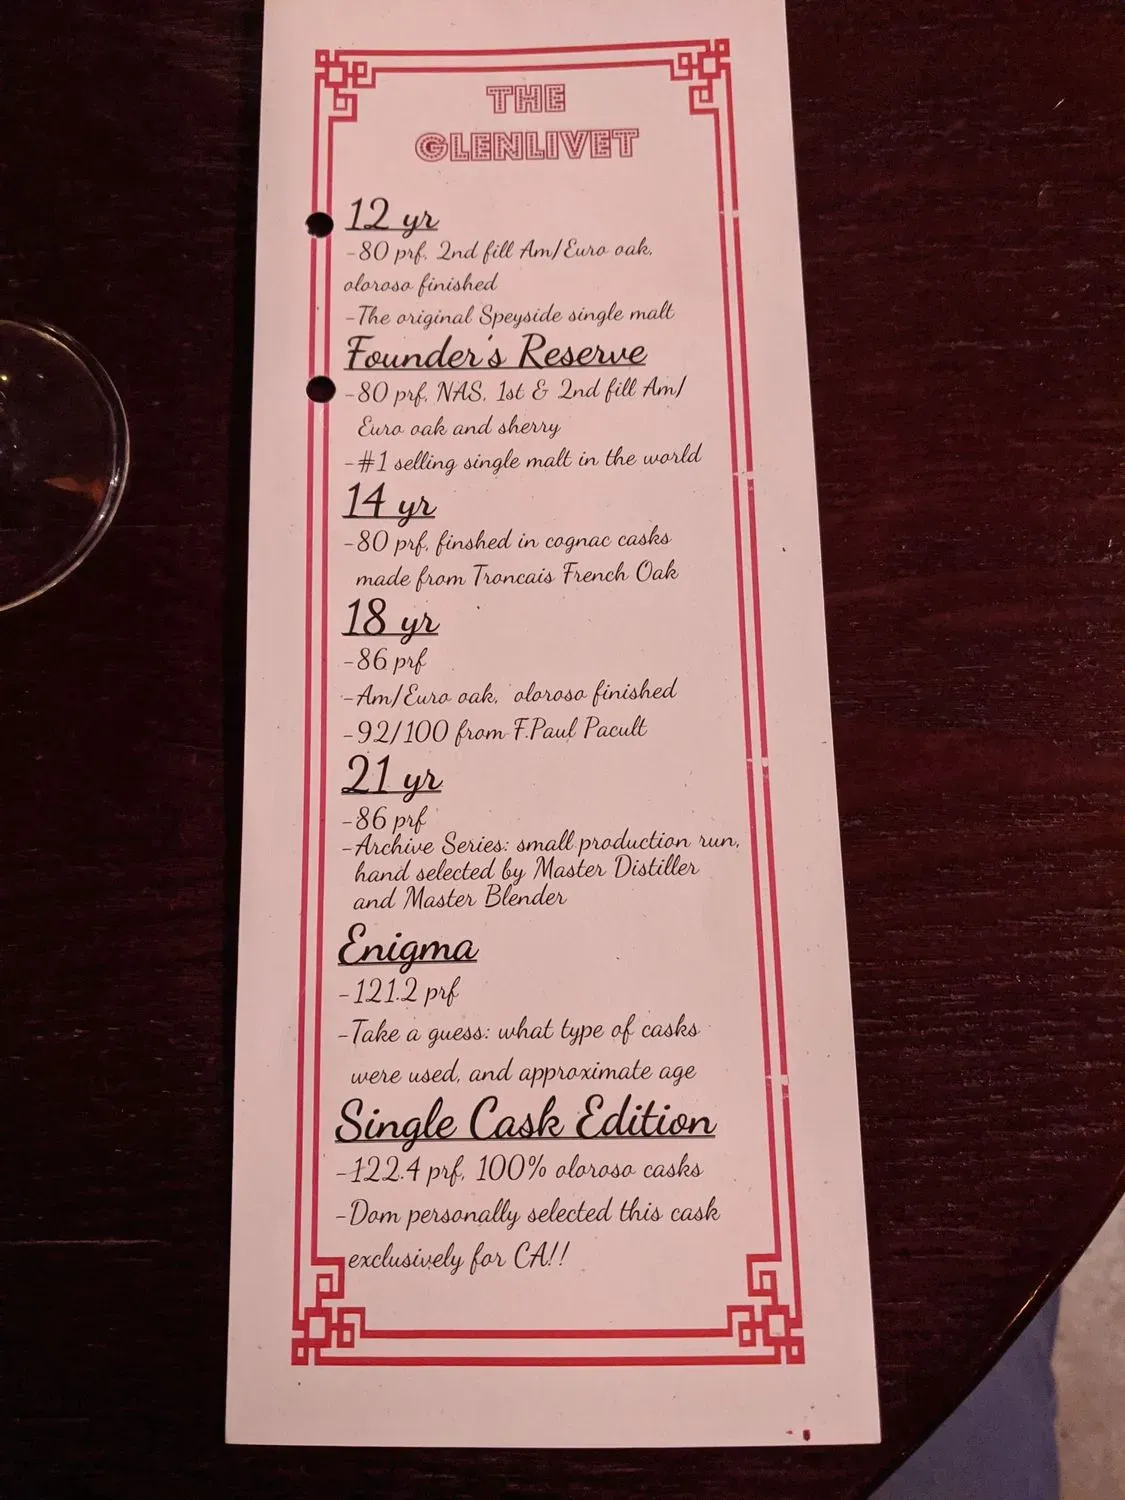 THE
GLENLIVET
12 yr
-80 prf, 2nd fill Am/Euro oak,
oloroso finished
-The original Speyside single malt
Founder's Reserve
-80 prf, NAS, 1st & 2nd fill Am/
Euro oak and sherry
-#1 selling single malt in the world
14 yr
-80 prf, finshed in cognac casks
made from Troncais French Oak
18 yr
-86 prf
-Am/Euro oak, oloroso finished
-92/100 from F.Paul Pacult
21 yr
-86 prf
-Archive Series: small production run,
hand selected by Master Distiller
and Master Blender
Enigma
-121.2 prf
-Take a guess: what type of casks
were used, and approximate age
Single Cask Edition
-122.4 prf, 100% oloroso casks
-Dom personally selected this cask
exclusively for CA!!